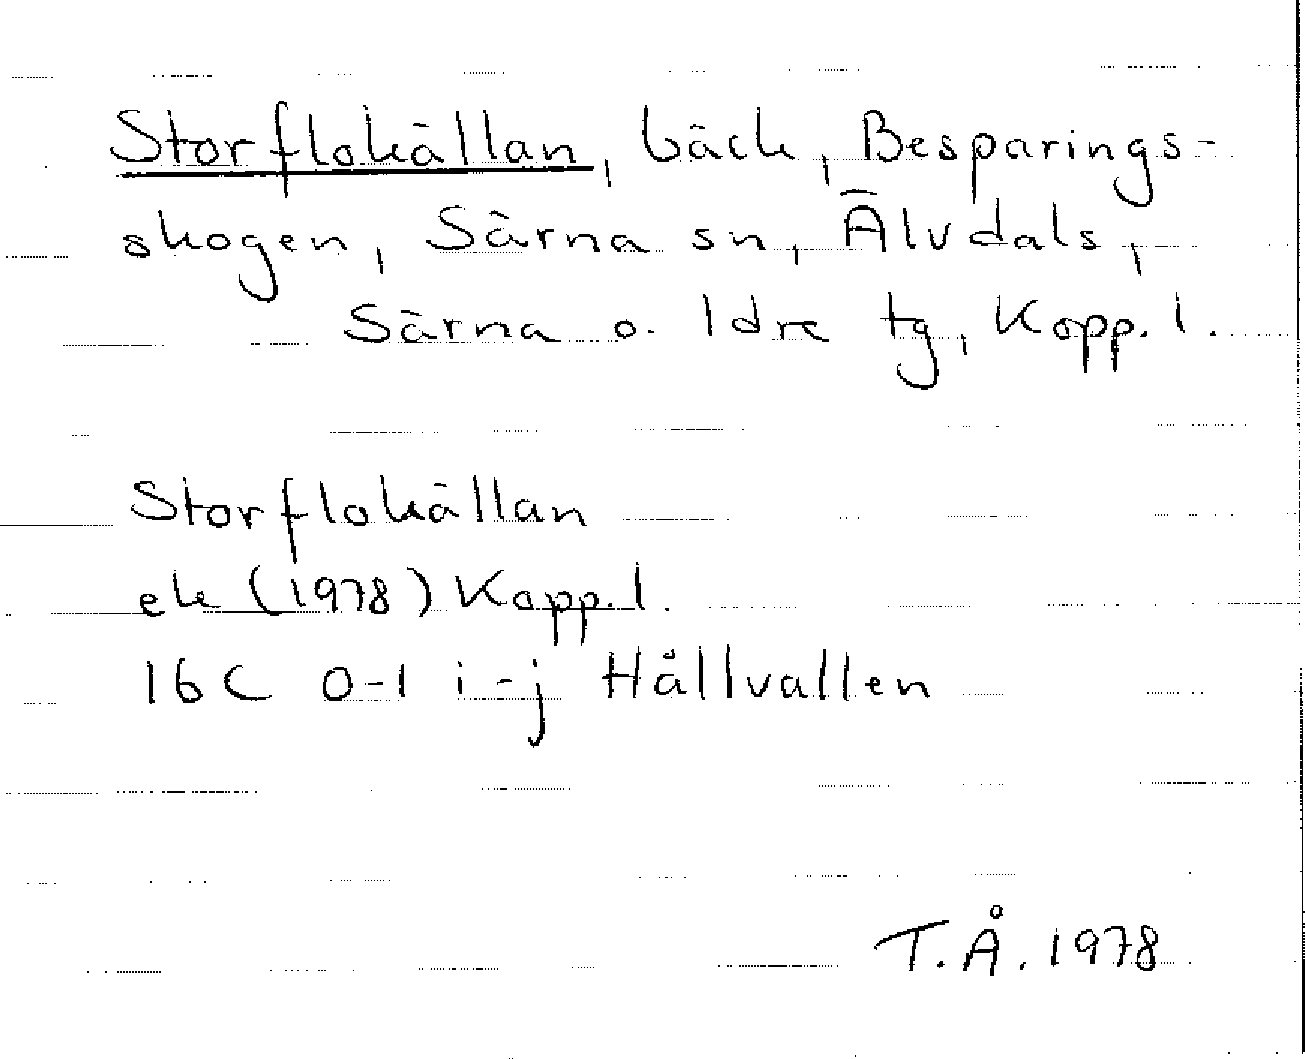 Storflokällan, bäck, Besparings-
skogen, Särna sn, Älvdals,
Särna o. Idre tg, Kopp. l.
Storflokällan
ek (1978) Kopp. l.
16C 0-1 i-j Hållvallen
T.Å. 1978